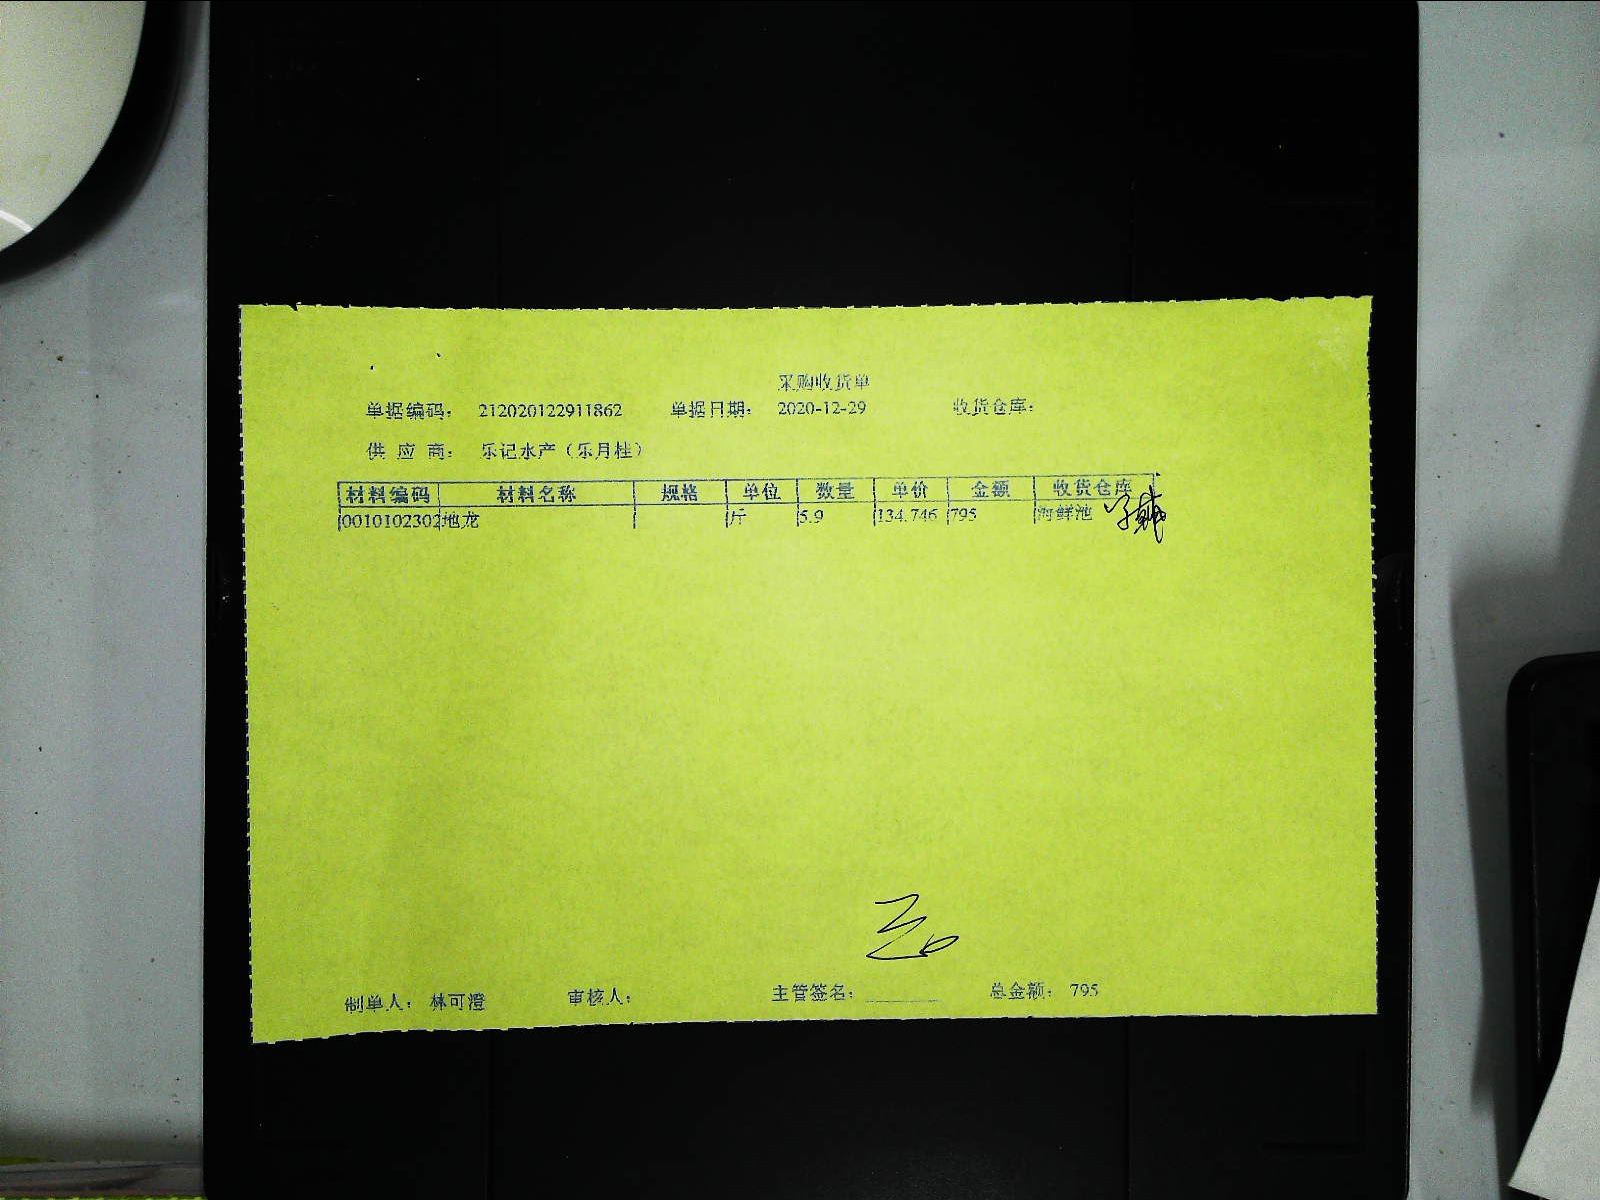 采购收货单
单据编码： 212020122911862 单据日期： 2020-12-29 收货仓库：
供 应 商： 乐记水产（乐月桂）
材料编码 材料名称 规格 单位 数量 单价 金额 收货仓库
0010102302 地龙 斤 5.9 134.746 795 海鲜池
制单人： 林可澄 审核人： 主管签名： 总金额： 795